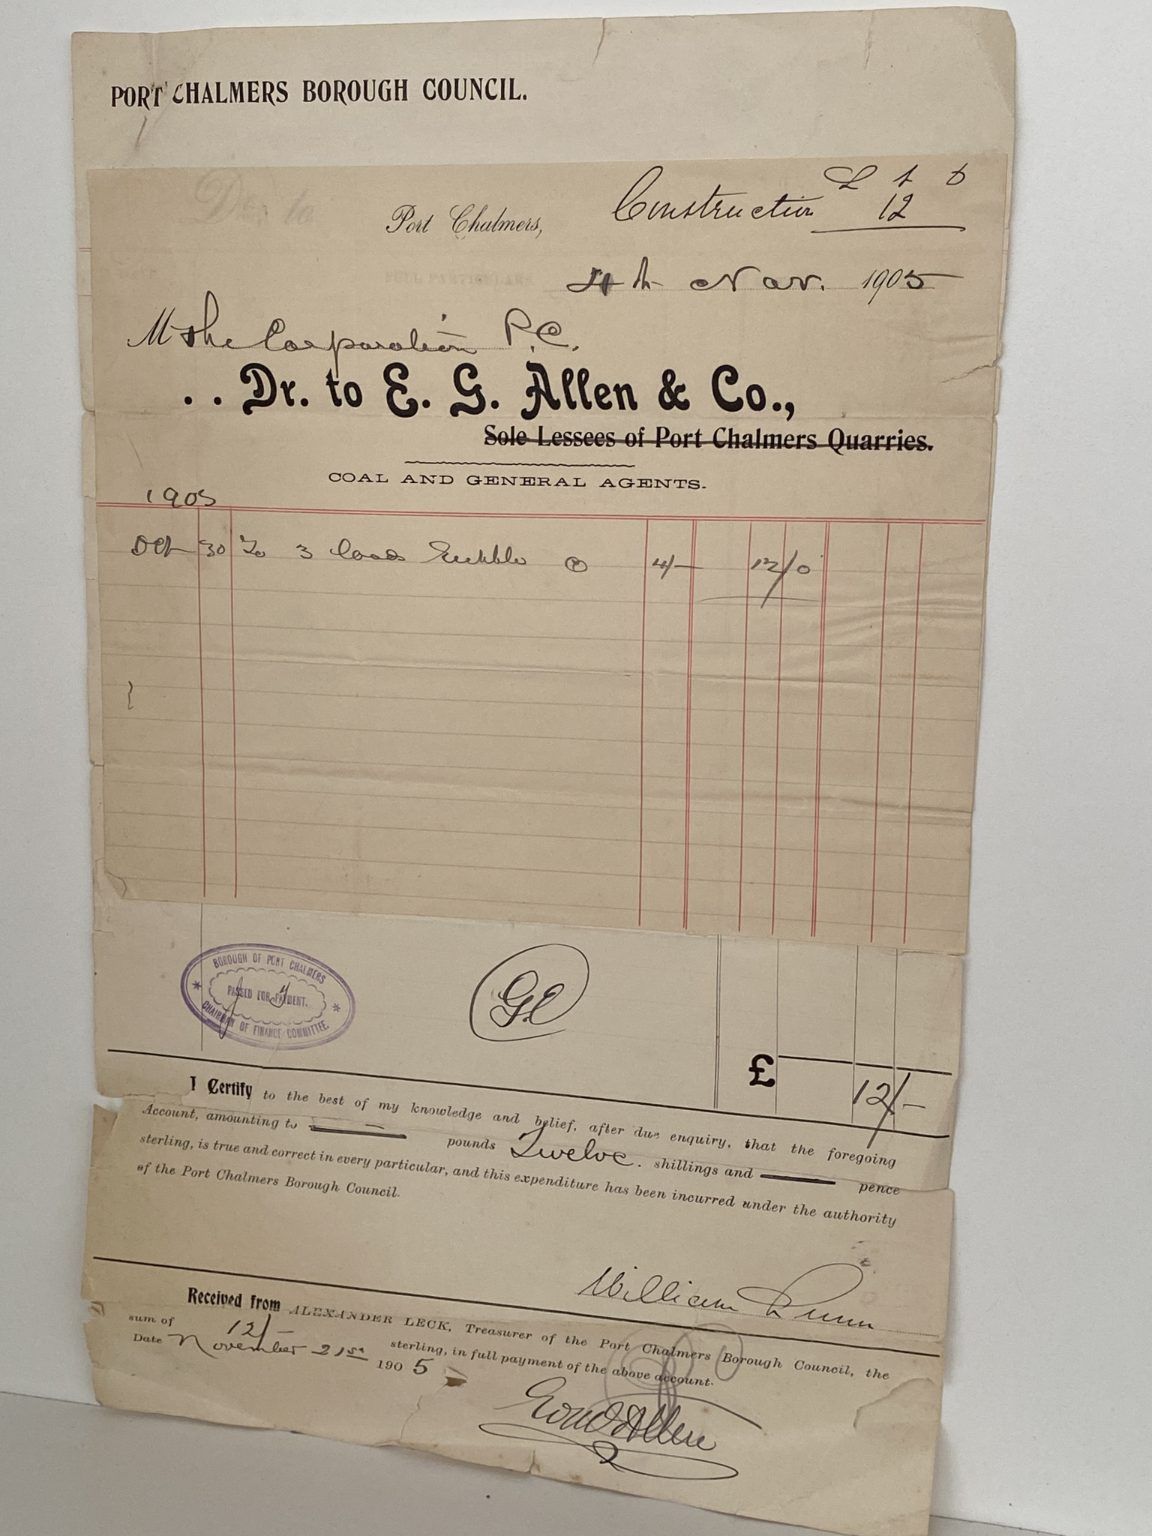 PORT CHALMERS BOROUGH COUNCIL.
£ s d
Construction 12
Port Chalmers,
4th Nov. 1905
M the Corporation P.C.
. . Dr. to E. G. Allen & Co.,
Sole Lessees of Port Chalmers Quarries.
COAL AND GENERAL AGENTS.
1905
Oct 30 To 3 loads Rubble @ 4/- 12/0
BOROUGH OF PORT CHALMERS
PASSED FOR PAYMENT.
CHAIRMAN OF FINANCE COMMITTEE.
£ 12/-
I Certify to the best of my knowledge and belief, after due enquiry, that the foregoing
Account, amounting to pounds Twelve. shillings and pence
sterling, is true and correct in every particular, and this expenditure has been incurred under the authority
of the Port Chalmers Borough Council.
William
Received from ALEXANDER LECK, Treasurer of the Port Chalmers Borough Council, the
sum of 12/- sterling, in full payment of the above account.
Date November 21st 1905
Allen